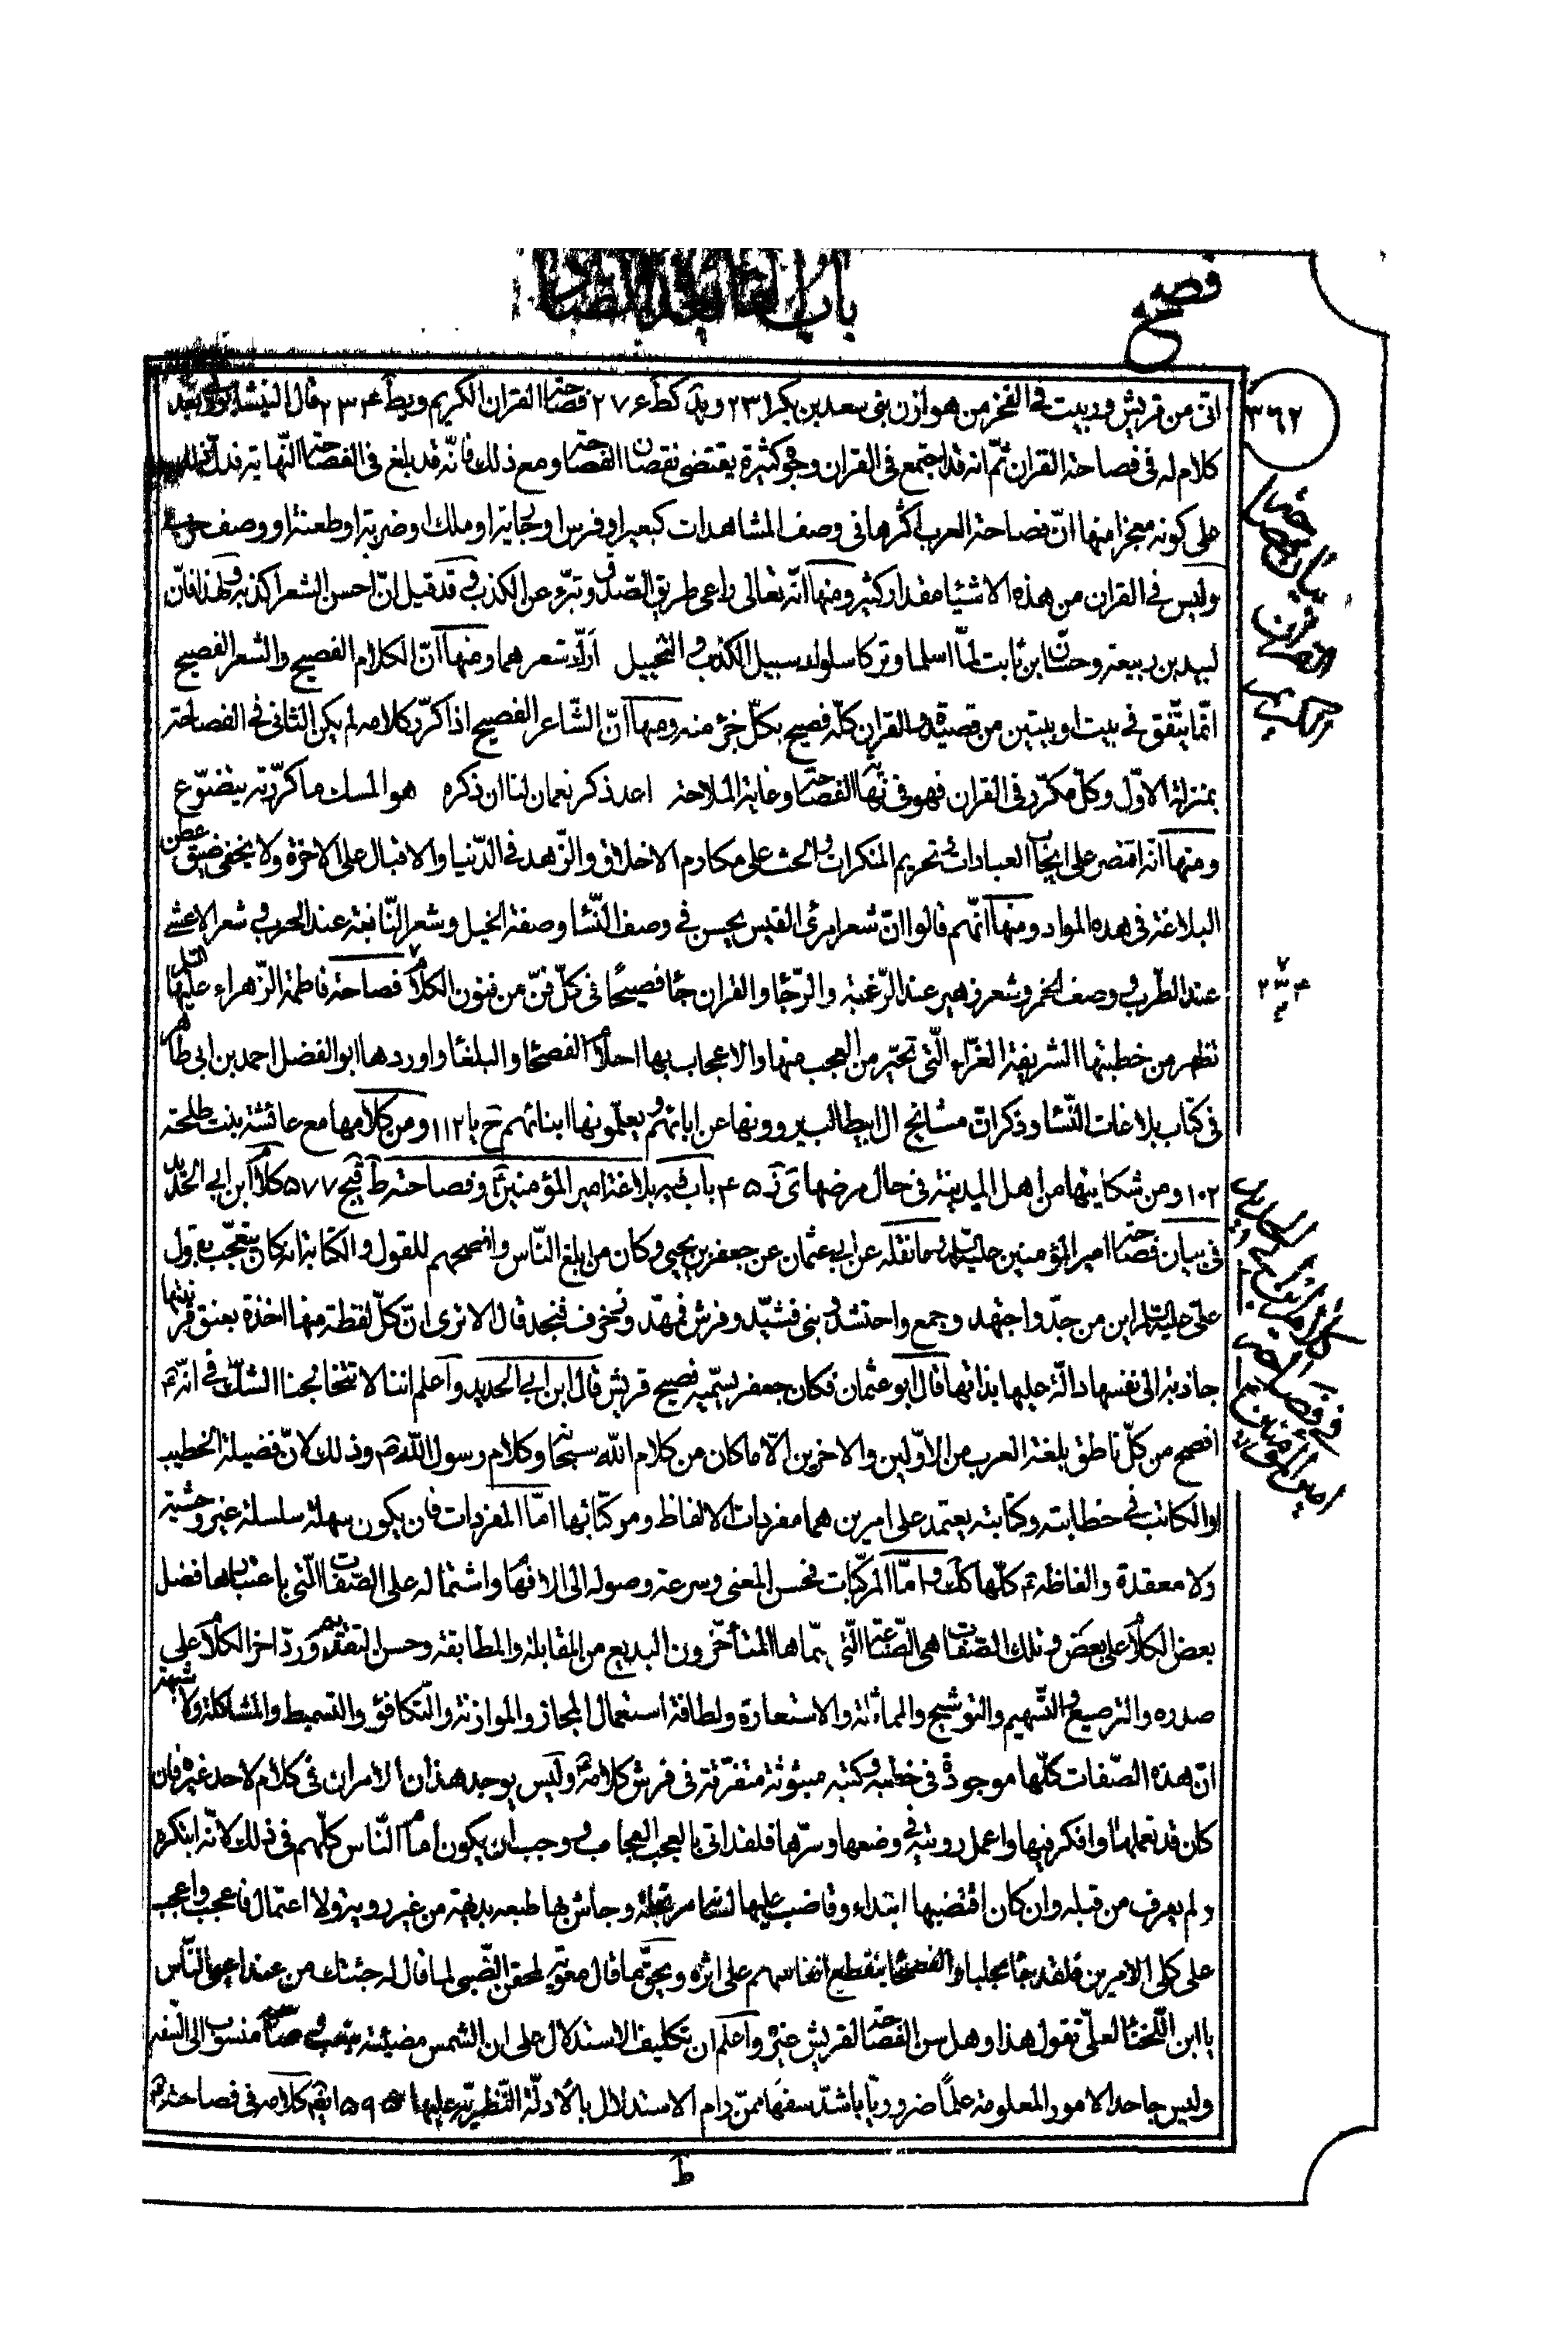 باب الفاء بعد الصاد
فصح
٣٦٢
انّى من قريش وربيت في الفخر من هوازن بنى سعد بن بكر ٢٣١ ويد كط ٢٧۶ فصاحة القران الكريم ويط ٢٣۴ قال النيشابورى بعد
كلام له فى فصاحة القران ثمّ انه قد اجتمع فى القران وجوه كثيرة يقتضى نقصان الفصاحة ومع ذلك فانّه قد بلغ فى الفصاحة النّهاية فدلّ ذلك
على كونه معجزا منها انّ فصاحة العرب اكثرها فى وصف المشاهدات كبعير او فرس او جارية او ملك او ضربة او طعنة او وصف حرب
وليس فى القران من هذه الاشياء مقدار كثير ومنها انّه تعالى راعى طريق الصّدق وتبرّء عن الكذب وقد قيل انّ احسن الشعر اكذبه ولهذا فانّ
لبيد بن ربيعة وحسّان ابن ثابت لمّا اسلما وتركا سلوك سبيل الكذب والتخييل ركّ شعرهما ومنها انّ الكلام الفصيح والشعر الفصيح
انّما يتّفق فى بيت او بيتين من قصيدة والقران كلّه فصيح بكلّ جزء منه ومنها انّ الشّاعر الفصيح اذا كرّر كلامه لم يكن الثانى فى الفصاحة
بمنزلة الاوّل وكلّ مكرّر فى القران فهو فى نهاية الفصاحة وغاية الملاحة اعد ذكر نعمان لنا ان ذكره هو المسك ما كرّرته يتضوّع
ومنها انّه اقتصر على ايجاب العبادات وتحريم المنكرات والحث على مكارم الاخلاق والزّهد فى الدّنيا والاقبال على الاخرة ولا يخفى ضيق عطن
البلاغة فى هذه المواد ومنها انّهم قالوا انّ شعر امرئ القيس يحسن فى وصف النّساء وصفة الخيل وشعر النّابغة عند الحرب وشعر الاعشى
عند الطّرب ووصف الخمر وشعر زهير عند الرّغبة والرّجاء والقران جاء فصيحا فى كلّ فنّ من فنون الكلام فصاحة فاطمة الزّهراء عليها السّلام
تظهر من خطبتها الشريفة الغرّاء الّتى تحيّر من العجب منها والاعجاب بها احلام الفصحاء والبلغاء واوردها ابو الفضل احمد بن ابى طاهر
فى كتاب بلاغات النّساء وذكر انّ مشايخ ال ابيطالب يروونها عن ابائهم ويعلّمونها ابنائهم ح يا ١١٢ ومن كلامها مع عائشة بنت طلحة
١٠٢ ومن شكايتها من اهل المدينة فى حال مرضها ى ز ۴۵ باب فيه بلاغة امير المؤمنين ع وفصاحته ط قيج ۵٧٧ كلام ابن ابى الحديد
فى بيان فصاحة امير المؤمنين عليه السّلام ممّا نقله عن ابى عثمان عن جعفر بن يحيى وكان من ابلغ النّاس وافصحهم للقول والكتابة انه كان يتعجّب بقول
علىّ عليه السّلام اين من جدّ واجتهد وجمع واحتشد وبنى فشيّد وفرش فمهّد وزخرف فنجد قال الا ترى انّ كلّ لفظة منها اخذة بعنق قرينتها
جاذبة الى نفسها دالّة عليها بذاتها قال ابو عثمان فكان جعفر يسمّيه فصيح قريش قال ابن ابى الحديد واعلم اننا لا يتخالجنا الشكّ فى انّه ع
افصح من كلّ ناطق بلغة العرب من الاوّلين والاخرين الّا ما كان من كلام الله سبحانه وكلام رسول الله ص وذلك لانّ فضيلة الخطيب
او الكاتب فى خطابته وكتابته يعتمد على امرين هما مفردات الالفاظ ومركّباتها امّا المفردات فان يكون سهلة سلسلة غير وحشية
ولا معقدة والفاظه ع كلّها كك وامّا المركّبات فحسن المعنى وسرعة وصوله الى الافهام واشتماله على الصّفات الّتى باعتبارها فضل
بعض الكلام على بعض وتلك الصّفات هى الصّناعة الّتى سمّاها المتأخّرون البديع من المقابلة والمطابقة وحسن التقسيم وردّ اخر الكلام على
صدره والترصيع والتّسهيم والتوشيح والمماثلة والاستعارة ولطافة استعمال المجاز والموازنة والتكافؤ والتسميط والمشاكلة ولا شبهة
انّ هذه الصّفات كلّها موجودة فى خطبه وكتبه مبثوثة متفرّقة فى فرش كلامه ع وليس يوجد هذان الامران فى كلام لاحد غيره فان
كان قد تعملها وافكر فيها واعمل رويته فى وضعها وسرّها فلقد اتى بالعجب العجاب ووجب ان يكون امام النّاس كلّهم فى ذلك لانّه ابتكره
ولم يعرف من قبله وان كان اقتضبها ابتداء وفاضت عليها لسانه مرتجلة وجاش بها طبعه بديهة من غير روية ولا اعتمال فاعجب واعجب
على كلى الامرين فلقد جاء مجليا والفصحاء ينقطع انفاسهم على اثره وبحقّ ما قال معوية لمحقن الضّبى لما قال له جئتك من عند اعيى النّاس
يا ابن اللّخناء العلىّ تقول هذا وهل سن الفصاحة لقريش غيره واعلم ان تكليف الاستدلال على ان الشمس مضيئة يتعب وصاحبه منسوب الى السّفه
وليس جاحد الامور المعلومة علما ضروريّا باشدّ سفها ممّن رام الاستدلال بالادلّة النّظريّة عليها ۵٩۵ ايضا كلامه فى فصاحته ع
بيان فصاحة القران الكريم
٢٣۴
كلام ابن ابى الحديد فى فصاحة امير المؤمنين
ط